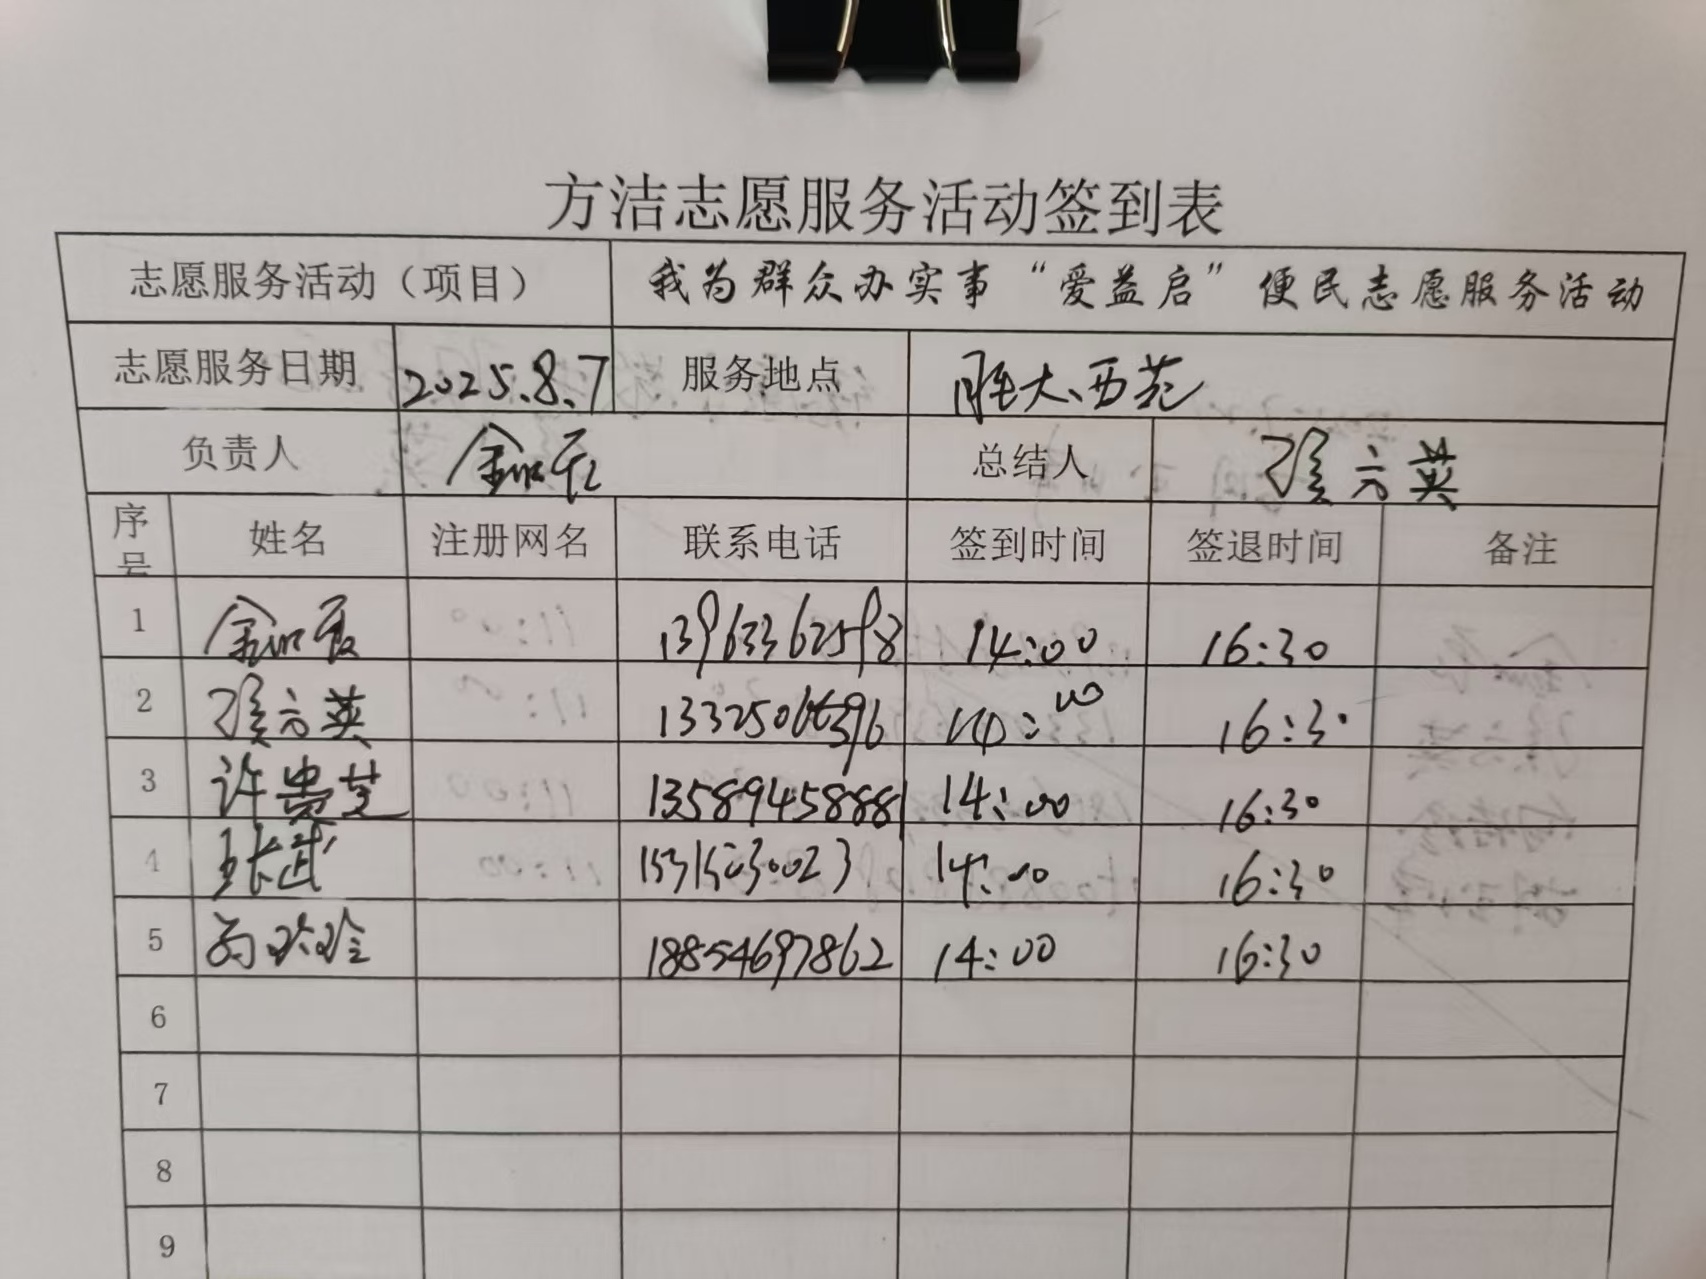 方洁志愿服务活动签到表
志愿服务活动（项目） 我为群众办实事“爱益启”便民志愿服务活动
志愿服务日期 2025.8.7 服务地点 胜大、西苑
负责人 总结人 张六英
序号 姓名 注册网名 联系电话 签到时间 签退时间 备注
1 13963362598 14:00 16:30
2 张六英 14:00 16:30
3 许贵芝 13589945888 14:00 16:30
4 14:00 16:30
5 18854697862 14:00 16:30
6
7
8
9